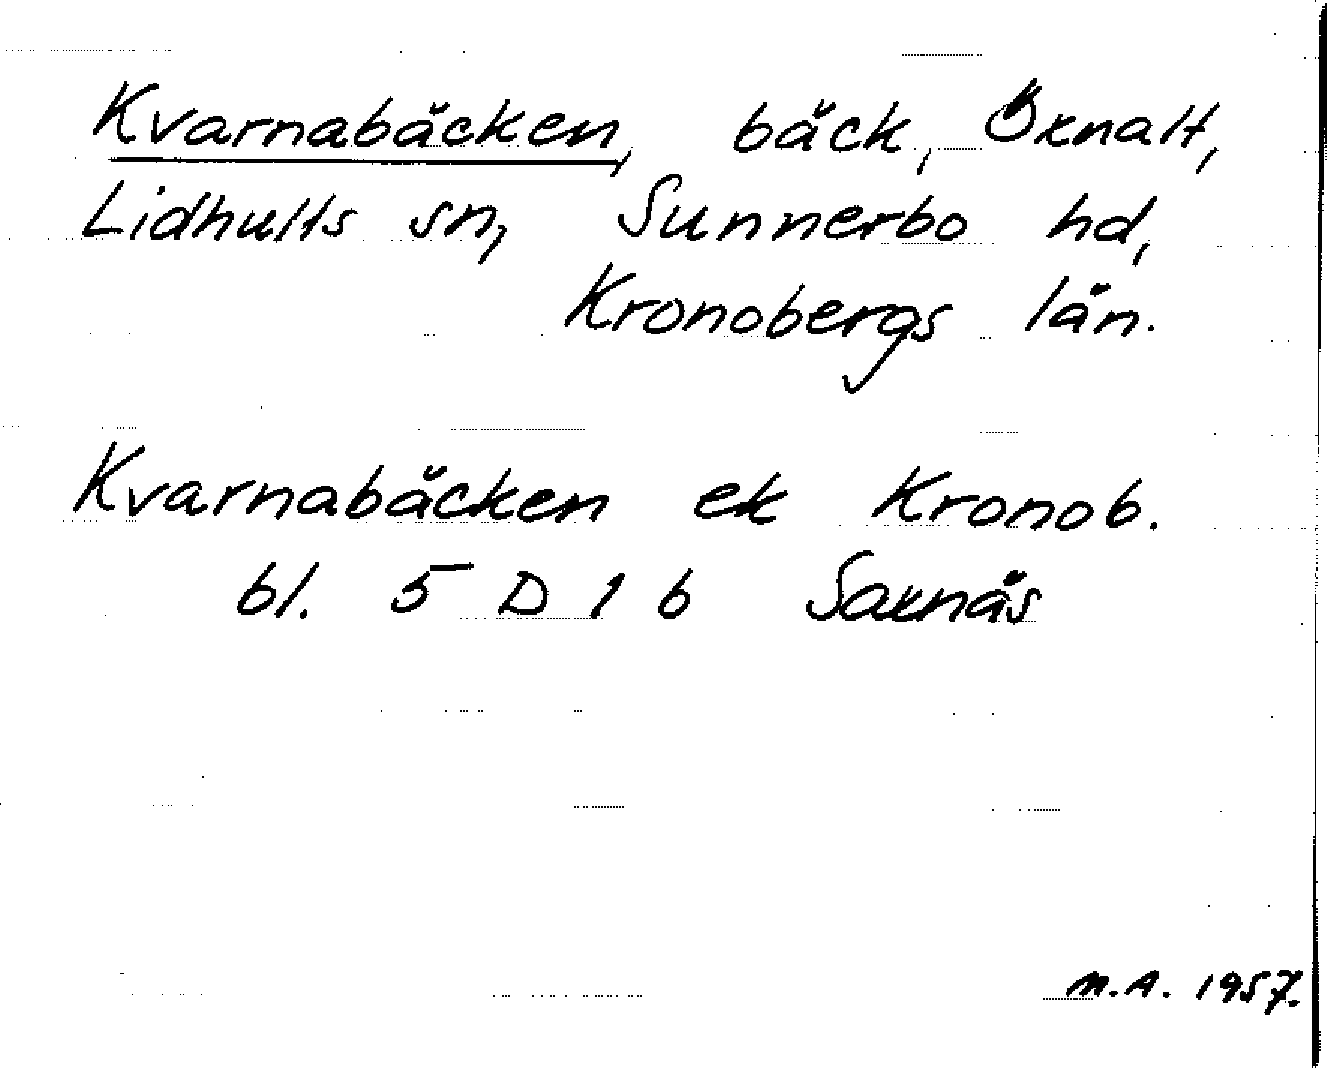 Kvarnabäcken, bäck, Öxnalt,
Lidhults sn, Sunnerbo hd,
Kronobergs län.
Kvarnabäcken ek Kronob.
bl. 5 D 1 b Saxnäs
M.A. 1957.